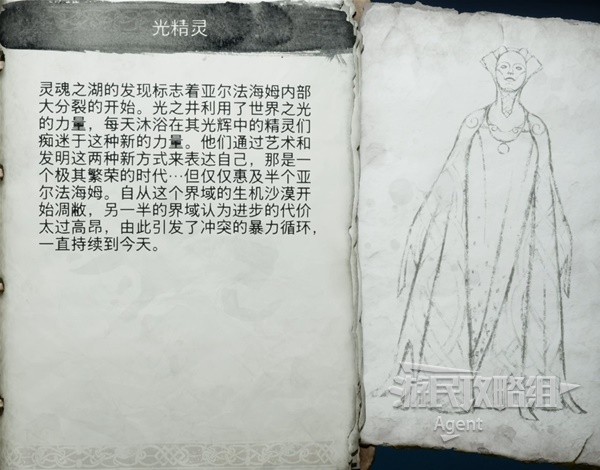 光精灵
灵魂之湖的发现标志着亚尔法海姆内部
大分裂的开始。光之井利用了世界之光
的力量，每天沐浴在其光辉中的精灵们
痴迷于这种新的力量。他们通过艺术和
发明这两种新方式来表达自己，那是一
个极其繁荣的时代…但仅仅惠及半个亚
尔法海姆。自从这个界域的生机沙漠开
始凋敝，另一半的界域认为进步的代价
太过高昂，由此引发了冲突的暴力循环，
一直持续到今天。
游民攻略组
Agent